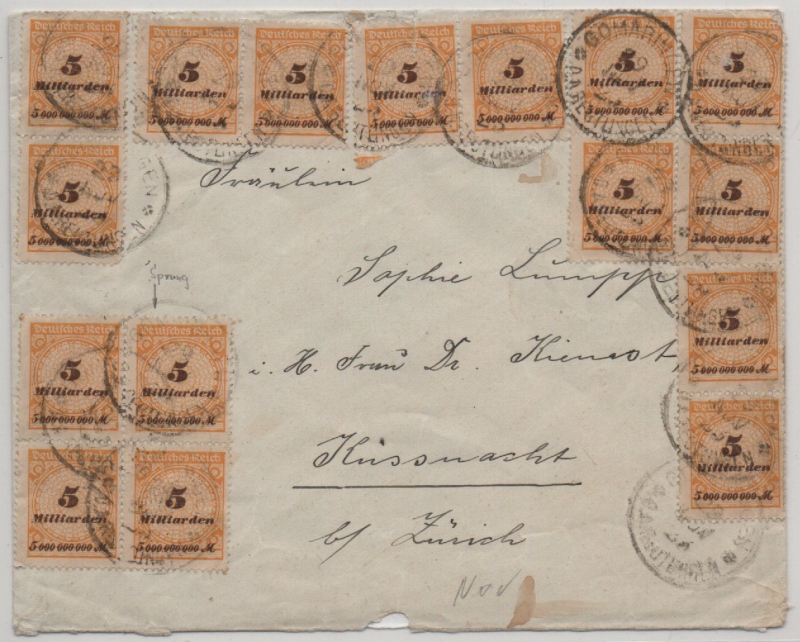 Deutsches Reich
5
Milliarden
5 000 000 000 M
Deutsches Reich
5
Milliarden
5 000 000 000 M
Deutsches Reich
5
Milliarden
5 000 000 000 M
Deutsches Reich
5
Milliarden
5 000 000 000 M
Deutsches Reich
5
Milliarden
5 000 000 000 M
Deutsches Reich
5
Milliarden
5 000 000 000 M
Deutsches Reich
5
Milliarden
5 000 000 000 M
Deutsches Reich
5
Milliarden
5 000 000 000 M
Deutsches Reich
5
Milliarden
5 000 000 000 M
Deutsches Reich
5
Milliarden
5 000 000 000 M
Fräulein
Sophie Lumpp
i. H. Frau Dr. Kienast,
Küssnacht
b/ Zürich
Sprung
Deutsches Reich
5
Milliarden
5 000 000 000 M
Deutsches Reich
5
Milliarden
5 000 000 000 M
Deutsches Reich
5
Milliarden
5 000 000 000 M
Deutsches Reich
5
Milliarden
5 000 000 000 M
Deutsches Reich
5
Milliarden
5 000 000 000 M
Deutsches Reich
5
Milliarden
5 000 000 000 M
Nov